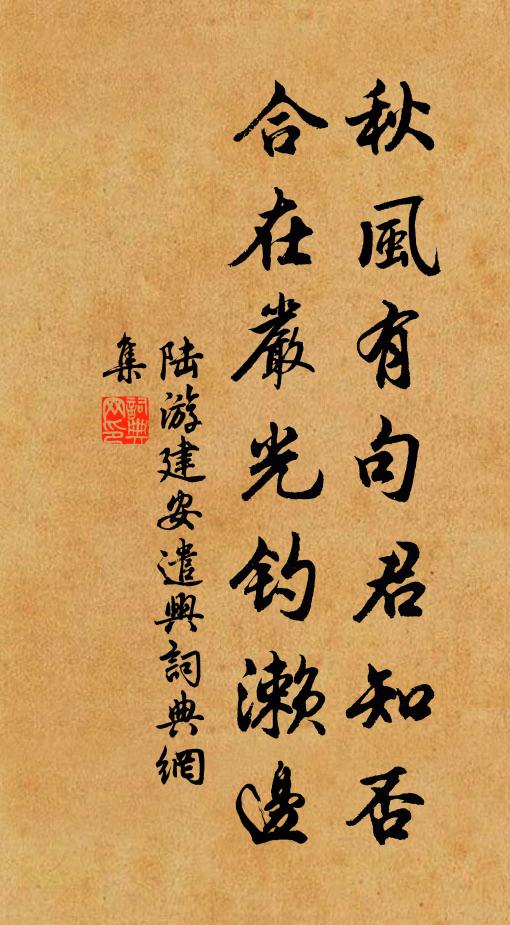 秋風有句君知否
合在嚴光釣瀨邊
陸游建安遣興詞典網
集
詞典網印